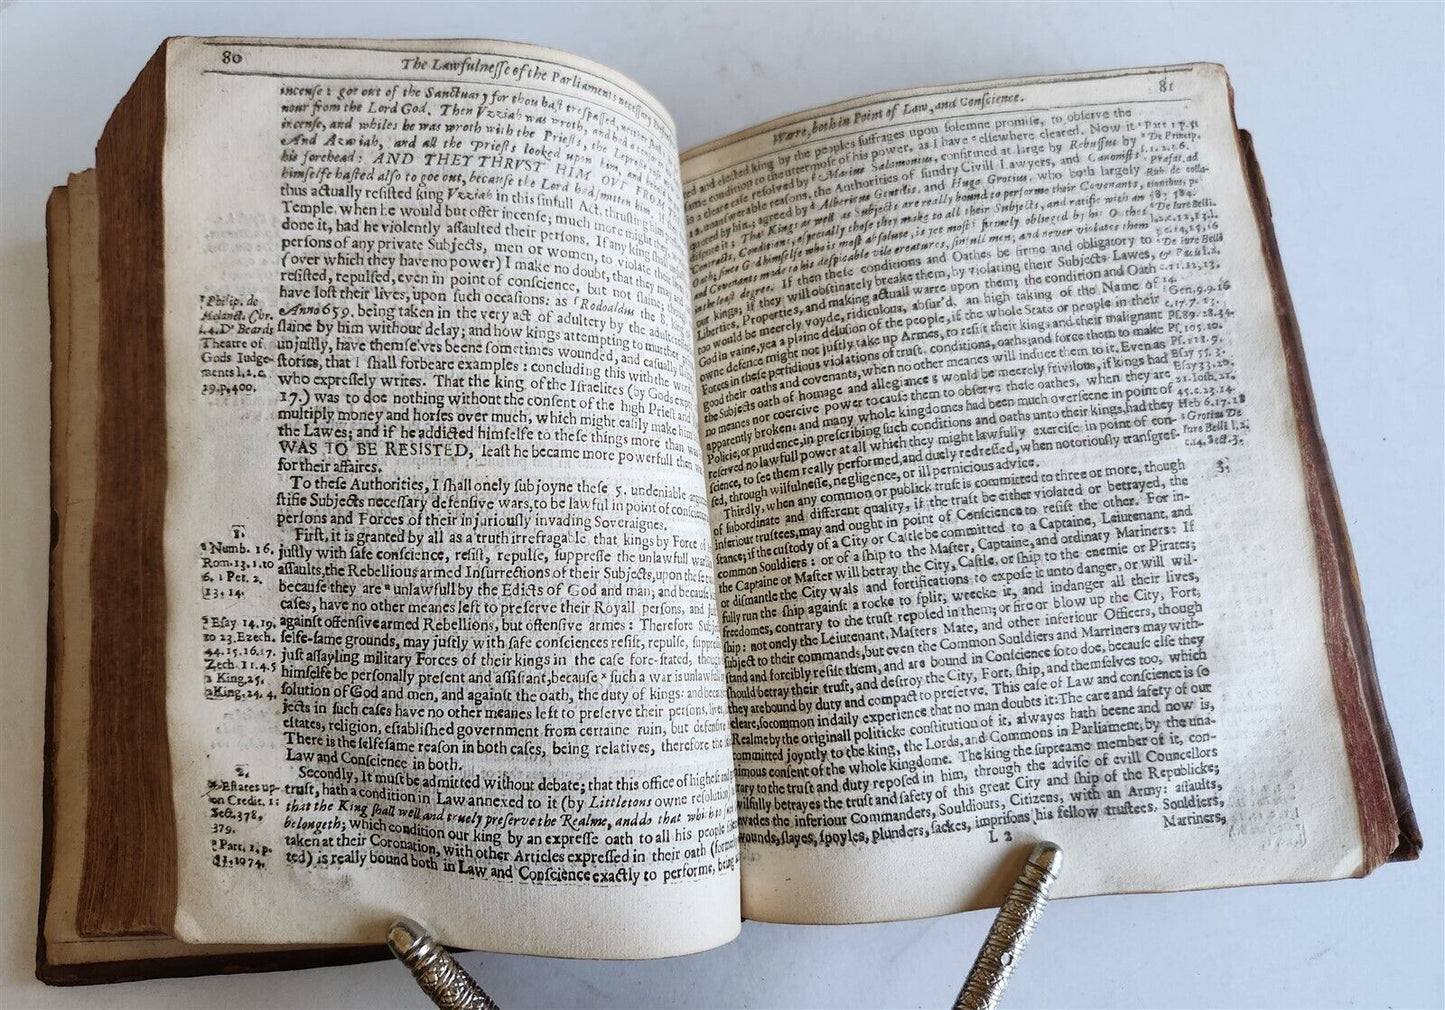 80
The Lawfulnesse of the Parliaments necessary
incense: goe out of the Sanctuary for thou hast trespassed, neither
nour from the Lord God. Then Vzziah was wroth, and had a
incense, and whiles he was wroth with the Priests, the Leprosie
And Azariah, and all the Priests looked upon him, and
his forehead: AND THEY THRVST HIM OVT FROM
himselfe hasted also to goe out, because the Lord had smitten him.
thus actually resisted king Vzziah in this sinfull Act, thrusting him
Temple, when he would but offer incense; much more might they
done it, had he violently assaulted their persons. If any king shall
persons of any private Subjects, men or women, to violate their
(over which they have no power) I make no doubt, that they may
resisted, repulsed, even in point of conscience, but not slaine;
have lost their lives, upon such occasions: as ſ Rodoaldus the 8.
Anno 659. being taken in the very act of adultery by the adulteresses
slaine by him without delay; and how kings attempting to murther
unjustly, have themselves beene sometimes wounded, and casually
stories, that I shall forbeare examples: concluding this with the
who expressely writes. That the king of the Israelites (by Gods
17.) was to doe nothing without the consent of the high Priest and
multiply money and horses over much, which might easily make him
the Lawes; and if he addicted himselfe to these things more than was
WAS TO BE RESISTED, least he became more powerfull then
for their affaires.
To these Authorities, I shall onely subjoyne these 5. undeniable
stifie Subjects necessary defensive wars, to be lawful in point of
persons and Forces of their injuriously invading Soveraignes.
First, it is granted by all as a truth irrefragable, that kings by Force of
justly with safe conscience, resist, repulse, suppresse the unlawfull
assaults, the Rebellious armed Insurrections of their Subjects, upon these
because they are unlawfull by the Edicts of God and man; and because
cases, have no other meanes left to preserve their Royall persons, and
against offensive armed Rebellions, but offensive armes: Therefore
selfe-same grounds, may justly with safe consciences resist, repulse,
just assayling military Forces of their kings in the case fore-stated,
himselfe be personally present and assistant, because x such a war is
solution of God and men, and against the oath, the duty of kings: and
jects in such cases have no other meanes left to preserve their persons, lives,
estates, religion, established government from certaine ruin, but defensive
There is the selfe same reason in both cases, being relatives, therefore the
Law and Conscience in both.
Secondly, It must be admitted without debate; that this office of highest and
trust, hath a condition in Law annexed to it (by Littletons owne resolution)
that the King shall well and truely preserve the Realme, and do that which to
belongeth; which condition our king by an expresse oath to all his people
taken at their Coronation, with other Articles expressed in their oath
ted) is really bound both in Law and Conscience exactly to performe, being
Philip. de
Melanct. Chr.
l. 4. Dr Beards
Theatre of
Gods Judge-
ments l, 2. c.
29. p, 400.
1.
Numb. 16.
Rom. 13. 1. to
6. 1 Pet. 2.
13, 14.
Esay 14. 19,
to 23. Ezech.
44. 15. 16. 17.
Zech. 11. 4. 5
2 King, 25.
2 King, 24. 4.
2.
Estates up-
on Credit. 1:
Sect. 378,
379.
Part. 1, p.
1074.
81
Warre, both in Point of Law, and Conscience.
ged and elected king by the peoples suffrages upon solemne promise, to observe the
same condition to the uttermost of his power, as I have elsewhere cleared. Now it
is a cleare case resolved by Marius Salamonius, confirmed at large by Rebussus by
12. unanswerable reasons, the Authorities of sundry Civill Lawyers, and Canonists
quoted by him; agreed by Albericus Gentilis, and Hugo Grotius, who both largely
dispute it: That Kings as well as Subjects are really bound to performe their Covenants,
Contracts, Conditions, especially those they make to all their Subjects, and ratifie with an
Oath; since God himselfe who is most absolute, is yet most firmely obliged by his Oathes
and Covenants made to his despicable vile creatures, sinfull men, and never violates them
in the least degree. If then these conditions and Oathes be firme and obligatory to
our kings; if they will obstinately breake them, by violating their Subjects Lawes,
Liberties, Properties, and making actuall warre upon them; the condition and Oath
too would be meerely voyde, ridiculous, absur'd, an high taking of the Name of
God in vaine, yea a plaine delusion of the people, if the whole State or people in their
owne defence might not justly take up Armes, to resist their kings and their malignant
Forces in these perfidious violations of trust, conditions, oaths; and force them to make
good their oaths and covenants, when no other meanes will induce them to it. Even as
the Subjects oath of homage and allegiance would be meerely frivilous, if kings had
no meanes nor coercive power to cause them to observe these oathes, when they are
apparently broken: and many whole kingdomes had been much overseene in point of
Policie, or prudence, in prescribing such conditions and oaths unto their kings, had they
reserved no lawfull power at all which they might lawfully exercise in point of con-
science, to see them really performed, and duely redressed, when notoriously transgres-
sed, through wilfulnesse, negligence, or ill pernicious advice.
Thirdly, when any common or publick trust is committed to three or more, though
of subordinate and different quality, if the trust be either violated or betrayed, the
inferious trustees, may and ought in point of Conscience to resist the other. For in-
stance; if the custody of a City or Castle be committed to a Captaine, Leiutenant, and
common Souldiers: or of a ship to the Master, Captaine, and ordinary Mariners: If
the Captaine or Master will betray the City, Castle, or ship to the enemie or Pirates;
or dismantle the City wals and fortifications to expose it unto danger, or will wil-
fully run the ship against a rocke to split, wrecke it, and indanger all their lives,
freedomes, contrary to the trust reposed in them; or fire or blow up the City, Fort,
ship: not onely the Leiutenant, Masters Mate, and other inferiour Officers, though
subject to their commands, but even the Common Souldiers and Marriners may with-
stand and forcibly resiste them, and are bound in Conscience so to doe, because else they
should betray their trust, and destroy the City, Fort, ship, and themselves too, which
they are bound by duty and compact to preserve. This case of Law and conscience is so
cleare, so common in daily experience that no man doubts it: The care and safety of our
Realme by the originall politicke constitution of it, alwayes hath beene and now is,
committed joyntly to the king, the Lords, and Commons in Parliament, by the una-
nimous consent of the whole kingdome. The king the supreame member of it, con-
trary to the trust and duty reposed in him, through the advise of evill Councellors
wilfully betrayes the trust and safety of this great City and ship of the Republicke;
invades the inferiour Commanders, Souldiours, Citizens, with an Army: assaults,
wounds, slayes, spoyles, plunders, sackes, imprisons his fellow trustees, Souldiers,
L 2
Mariners,
Part. 1. p. 51
De Princip.
l. 1. 2. 6.
Præfat. ad
Rub. de colla-
tionibus, p.
583, 584.
De Jure Belli.
l. 2. c. 12, 13.
14, 15, 16
De Jure Belli
& Pacis l. 2.
c. 11, 12, 13,
14.
Gen. 9. 9. 16
c. 17. 7. 13.
Psf. 89. 28. 34.
Ps. 105. 10.
Ps. 118. 9.
Esay 55. 3.
Esay 33. 20,
21. Iosh, 21.
45. c. 23. 14.
Heb 6. 17. 18
Grotius De
Jure Belli l. 2.
c. 14. Sect. 3.
3.